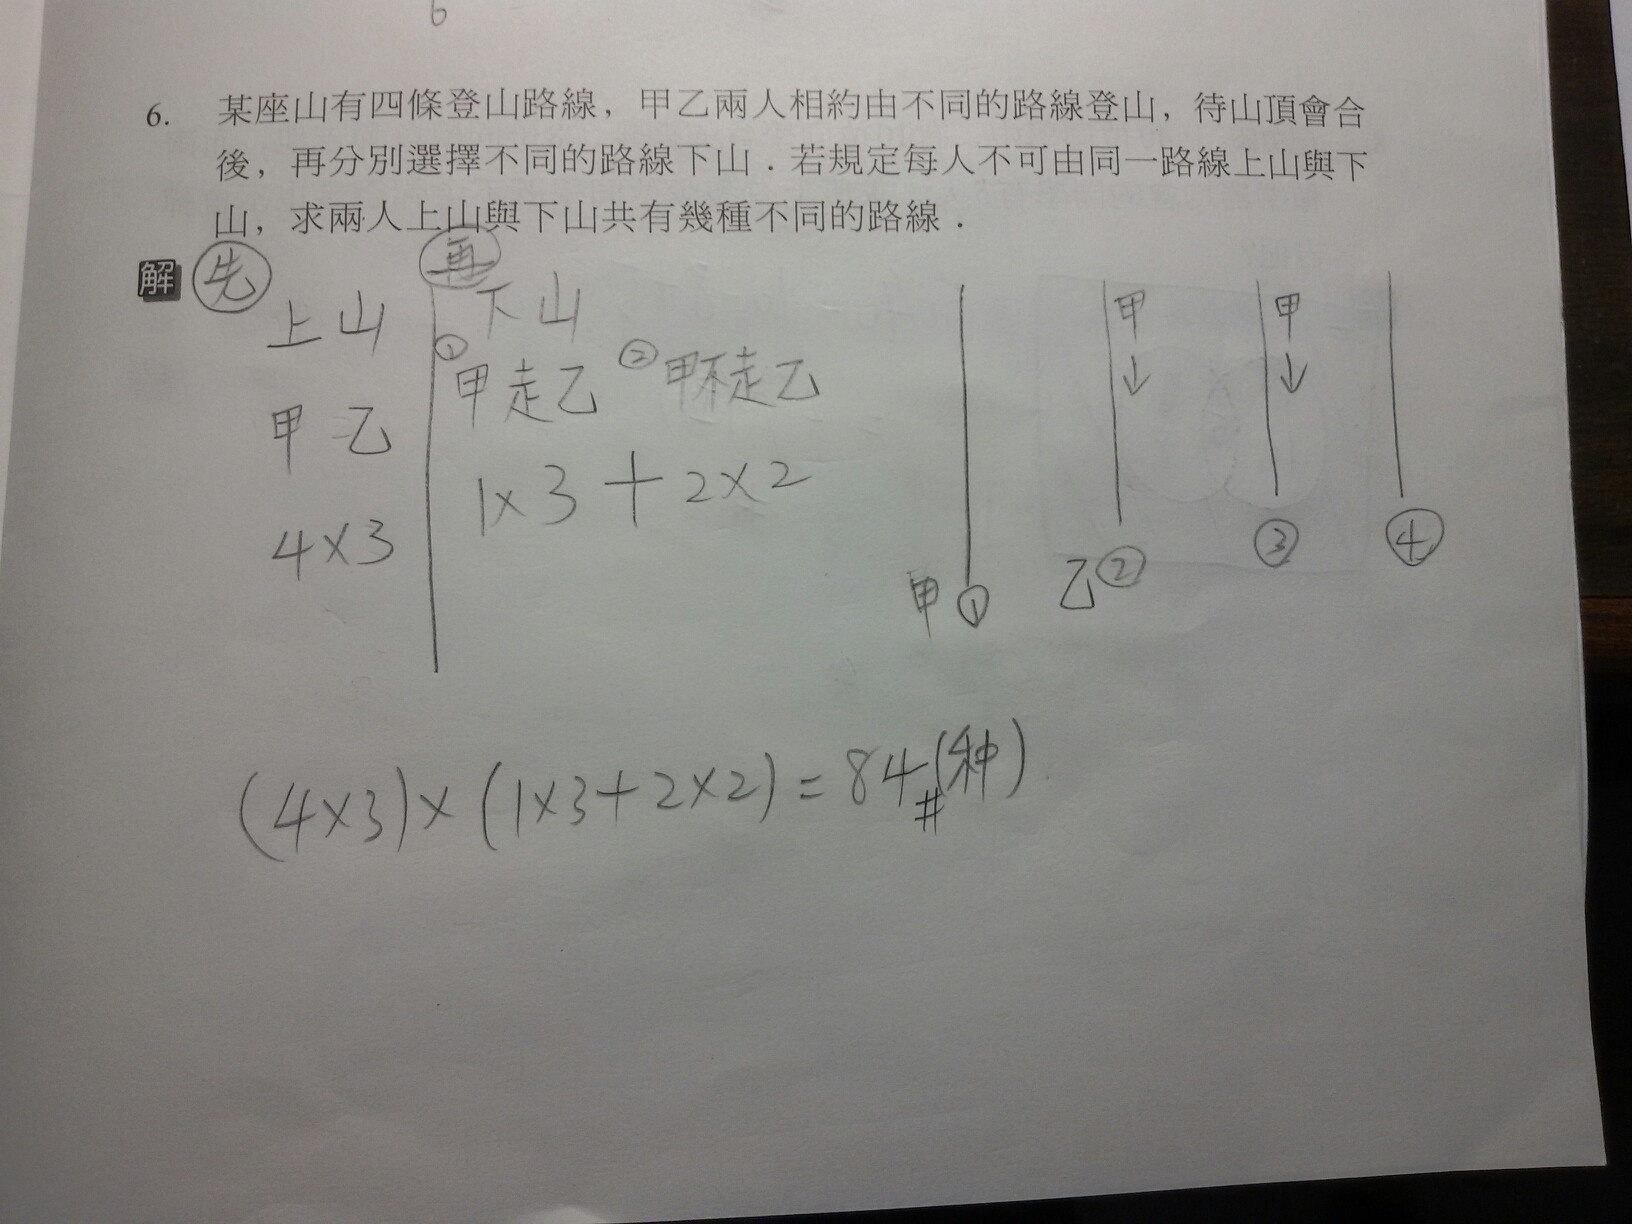 6
6. 某座山有四條登山路線，甲乙兩人相約由不同的路線登山，待山頂會合
後，再分別選擇不同的路線下山．若規定每人不可由同一路線上山與下
山，求兩人上山與下山共有幾種不同的路線．
解 先 再
上山 下山
①甲走乙 ②甲不走乙
甲 乙
1×3+2×2
4×3
甲 甲
↓ ↓
甲① 乙② ③ ④
(4×3)×(1×3+2×2)=84#(种)